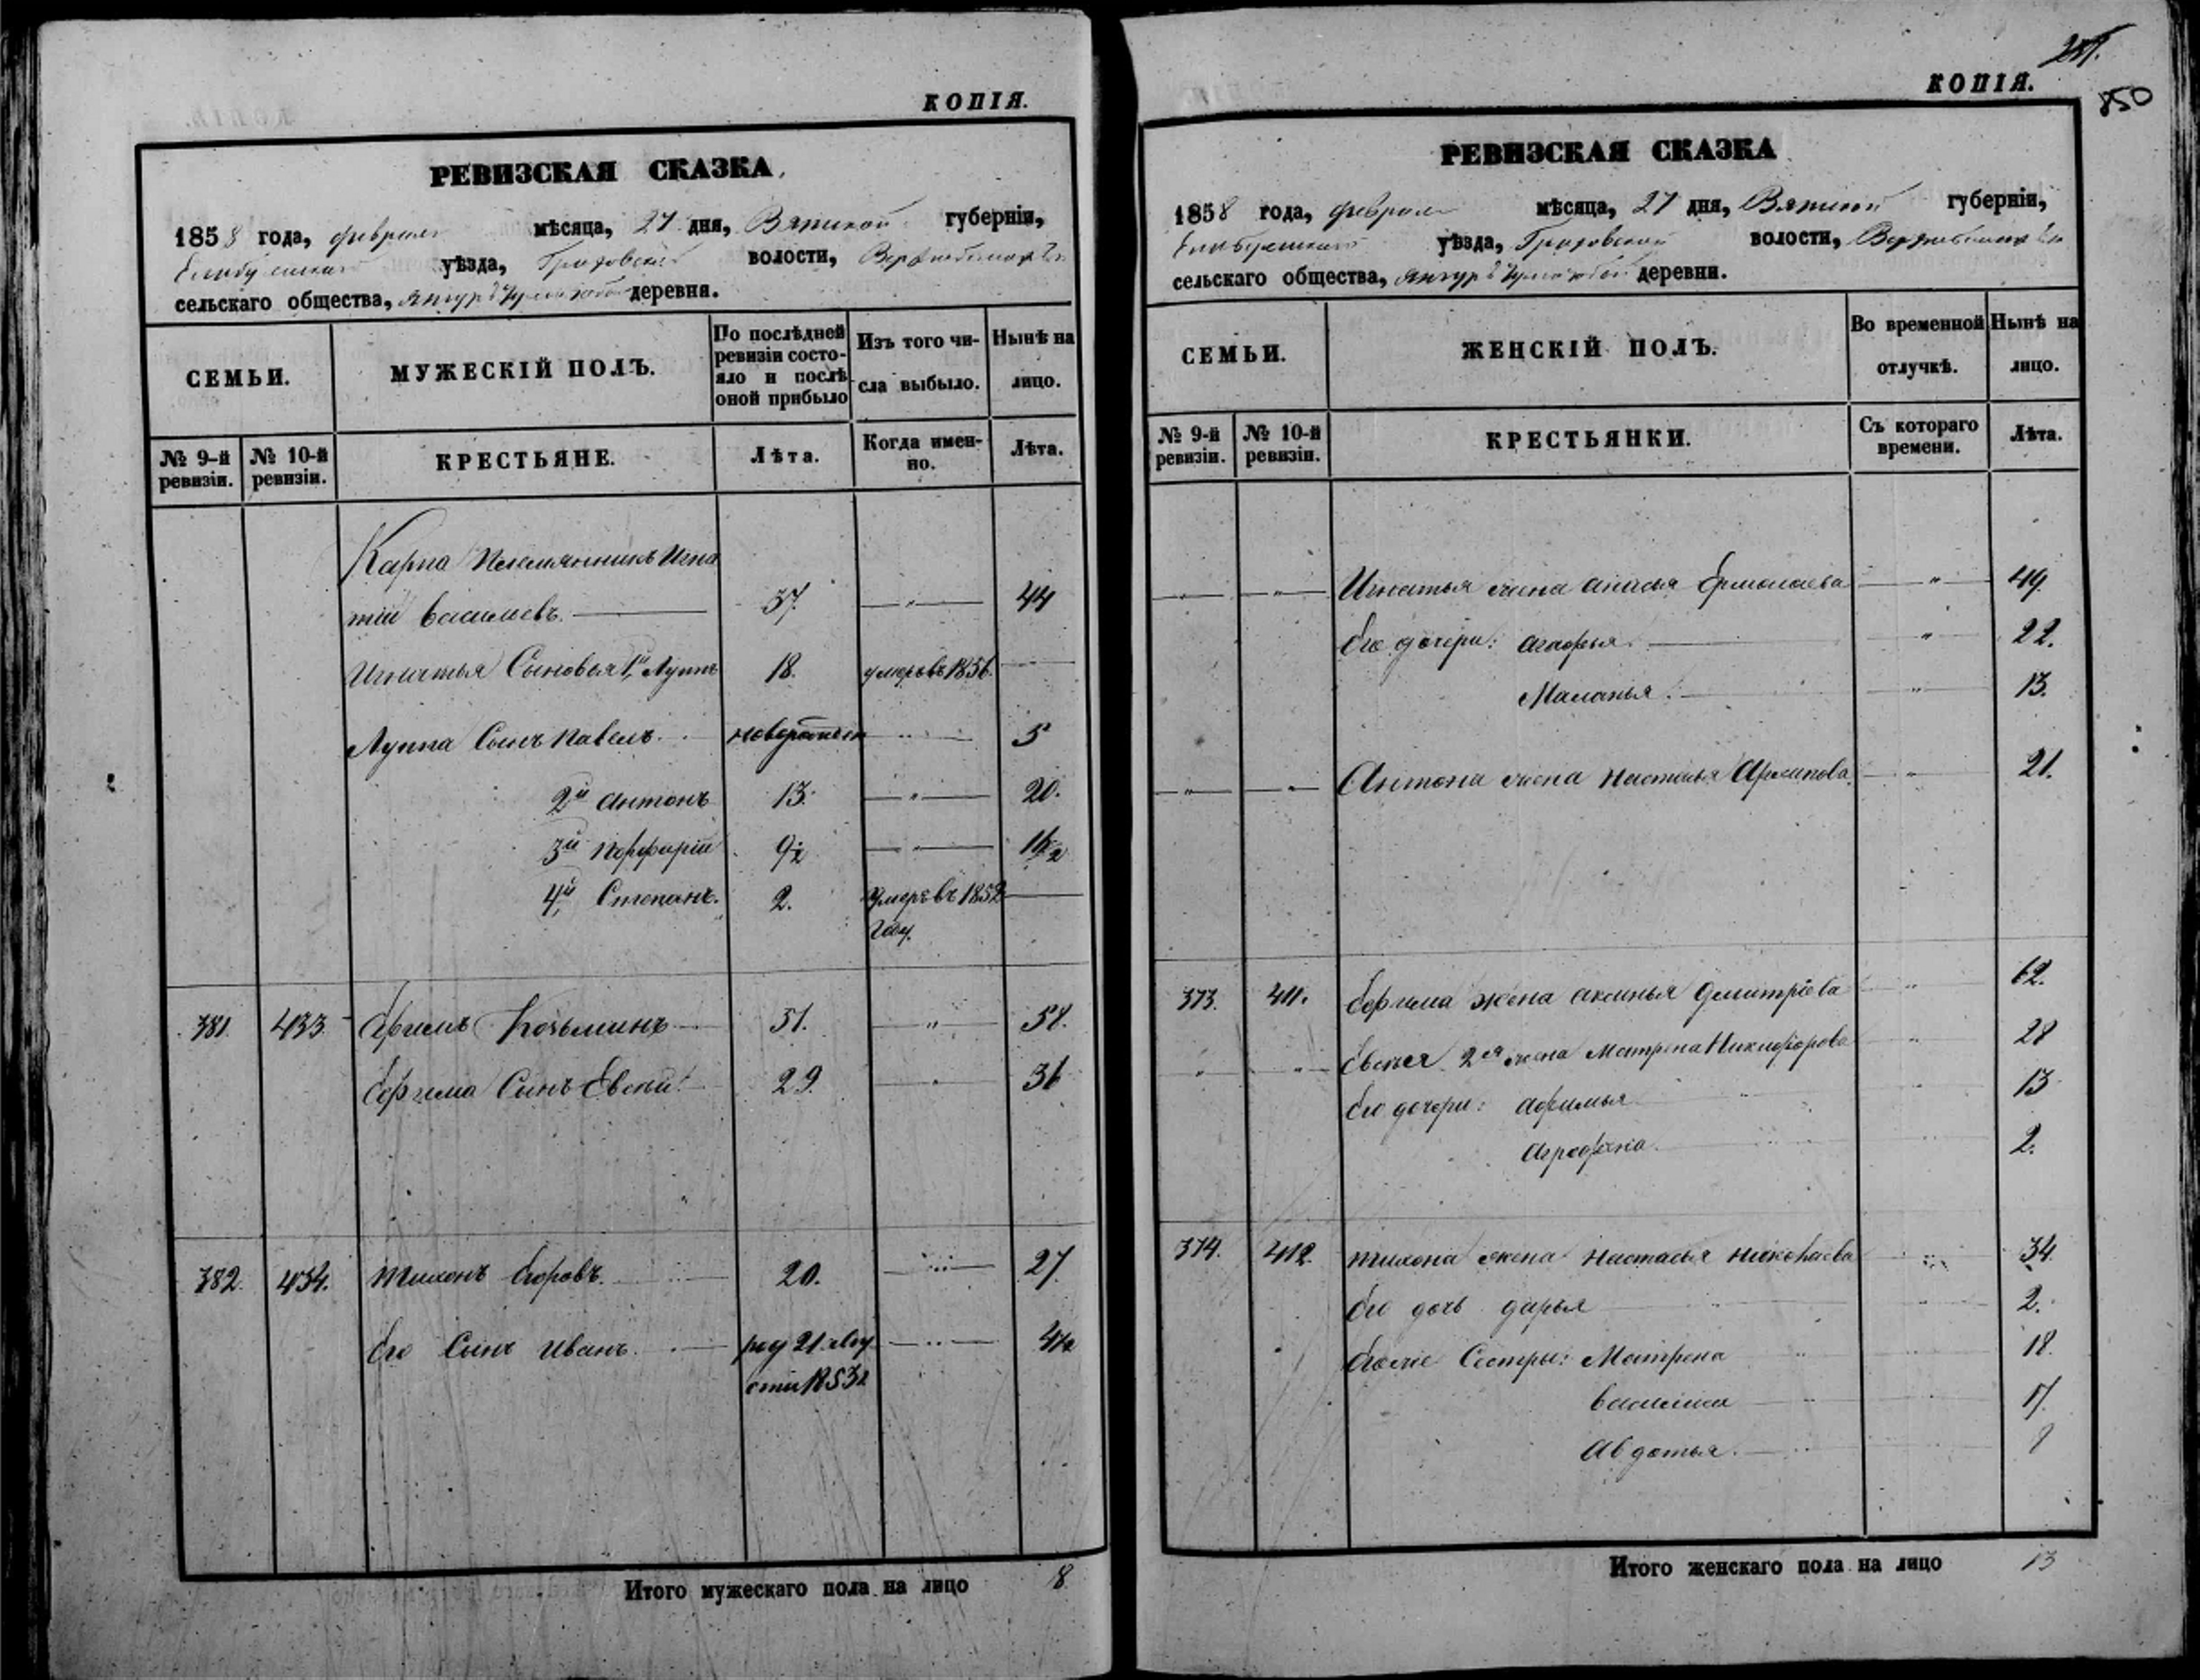 КОПІЯ.
РЕВИЗСКАЯ СКАЗКА.
1858 года, февраля мѣсяца, 27 дня, Вятской губерніи,
уѣзда, волости,
сельскаго общества, деревня.
СЕМЬИ.
МУЖЕСКІЙ ПОЛЪ.
По послѣдней ревизіи состо-
яло и послѣ оной прибыло
Изъ того чи-
сла выбыло.
Нынѣ на
лицо.
№ 9-й ревизіи.
№ 10-й ревизіи.
КРЕСТЬЯНЕ.
Лѣта.
Когда имен-
но.
Лѣта.
Карпа Племянникъ Игна
тій Васильевъ. 37. " 44
Игнатья Сыновья 1й Луппъ 18. умеръ въ 1856.
Луппа Сынъ Павелъ. 5
2й Антонъ 13. " 20.
3й Порфирій 9½ "
4й Степанъ. 2. Умеръ въ 1852
году.
381. 433 Ефимъ Козьминъ 51. " 58.
Ефима Сынъ Евсей 29. " 36
382. 434. Тихонъ Егоровъ. 20. " 27.
Его Сынъ Иванъ. род 21 авгу
ста 1853 г.
Итого мужескаго пола на лицо 8
КОПІЯ.
850
РЕВИЗСКАЯ СКАЗКА
1858 года, февраля мѣсяца, 27 дня, Вятской губерніи,
уѣзда, волости,
сельскаго общества, деревни.
СЕМЬИ.
ЖЕНСКІЙ ПОЛЪ.
Во временной
отлучкѣ.
Нынѣ на
лицо.
№ 9-й ревизіи.
№ 10-й ревизіи.
КРЕСТЬЯНКИ.
Съ котораго
времени.
Лѣта.
" " Игнатья жена Анисья Ермолаева " 49.
Его дочери: Агафья. " 22.
Маланья. " 13.
" " Антона жена Настасья " 21.
373. 411. Ефима жена Аксинья Дмитріева " 62.
" " Евсея 2я жена Матрена Никифорова " 28
Его дочери: Афимья " 13
Аграфена. " 2.
374. 412. Тихона жена Настасья Николаева " 34
Его дочь Дарья " 2.
Его же Сестры: Матрена " 18.
Василиса " 17.
Авдотья.
Итого женскаго пола на лицо 13